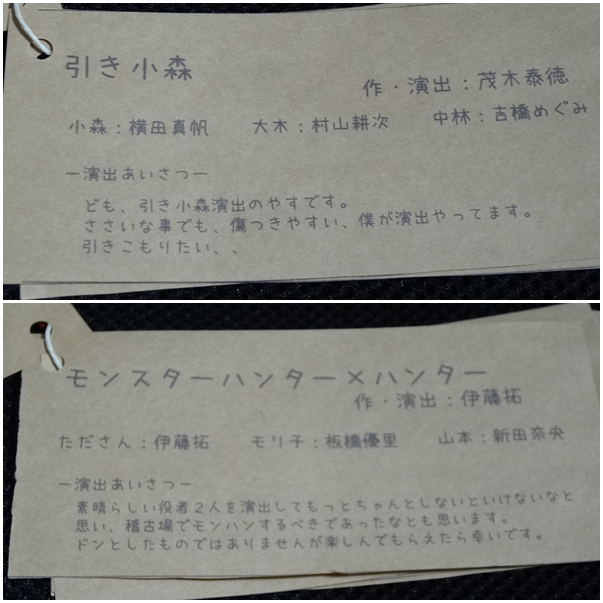 引き小森
作・演出：茂木泰徳
小森：横田真帆　大木：村山耕次　中林：吉橋めぐみ
ー演出あいさつー
ども、引き小森演出のやすです。
ささいな事でも、傷つきやすい、僕が演出やってます。
引きこもりたい、、
モンスターハンター×ハンター
作・演出：伊藤拓
たださん：伊藤拓　モリ子：板橋優里　山本：新田奈央
ー演出あいさつー
素晴らしい役者２人を演出してもっとちゃんとしないといけないなと
思い、稽古場でモンハンするべきであったなとも思います。
ドンとしたものではありませんが楽しんでもらえたら幸いです。